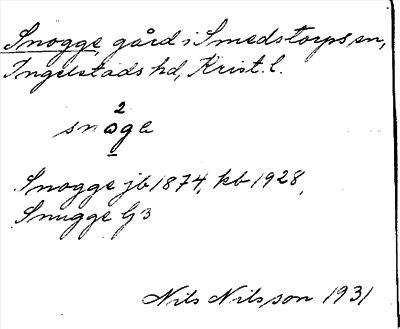 Snogge, gård i Smedstorps sn,
Ingelstads hd, Krist. l.
2
snoge
Snogge jb 1874, kb 1928,
Snugge G3
Nils Nilsson 1931